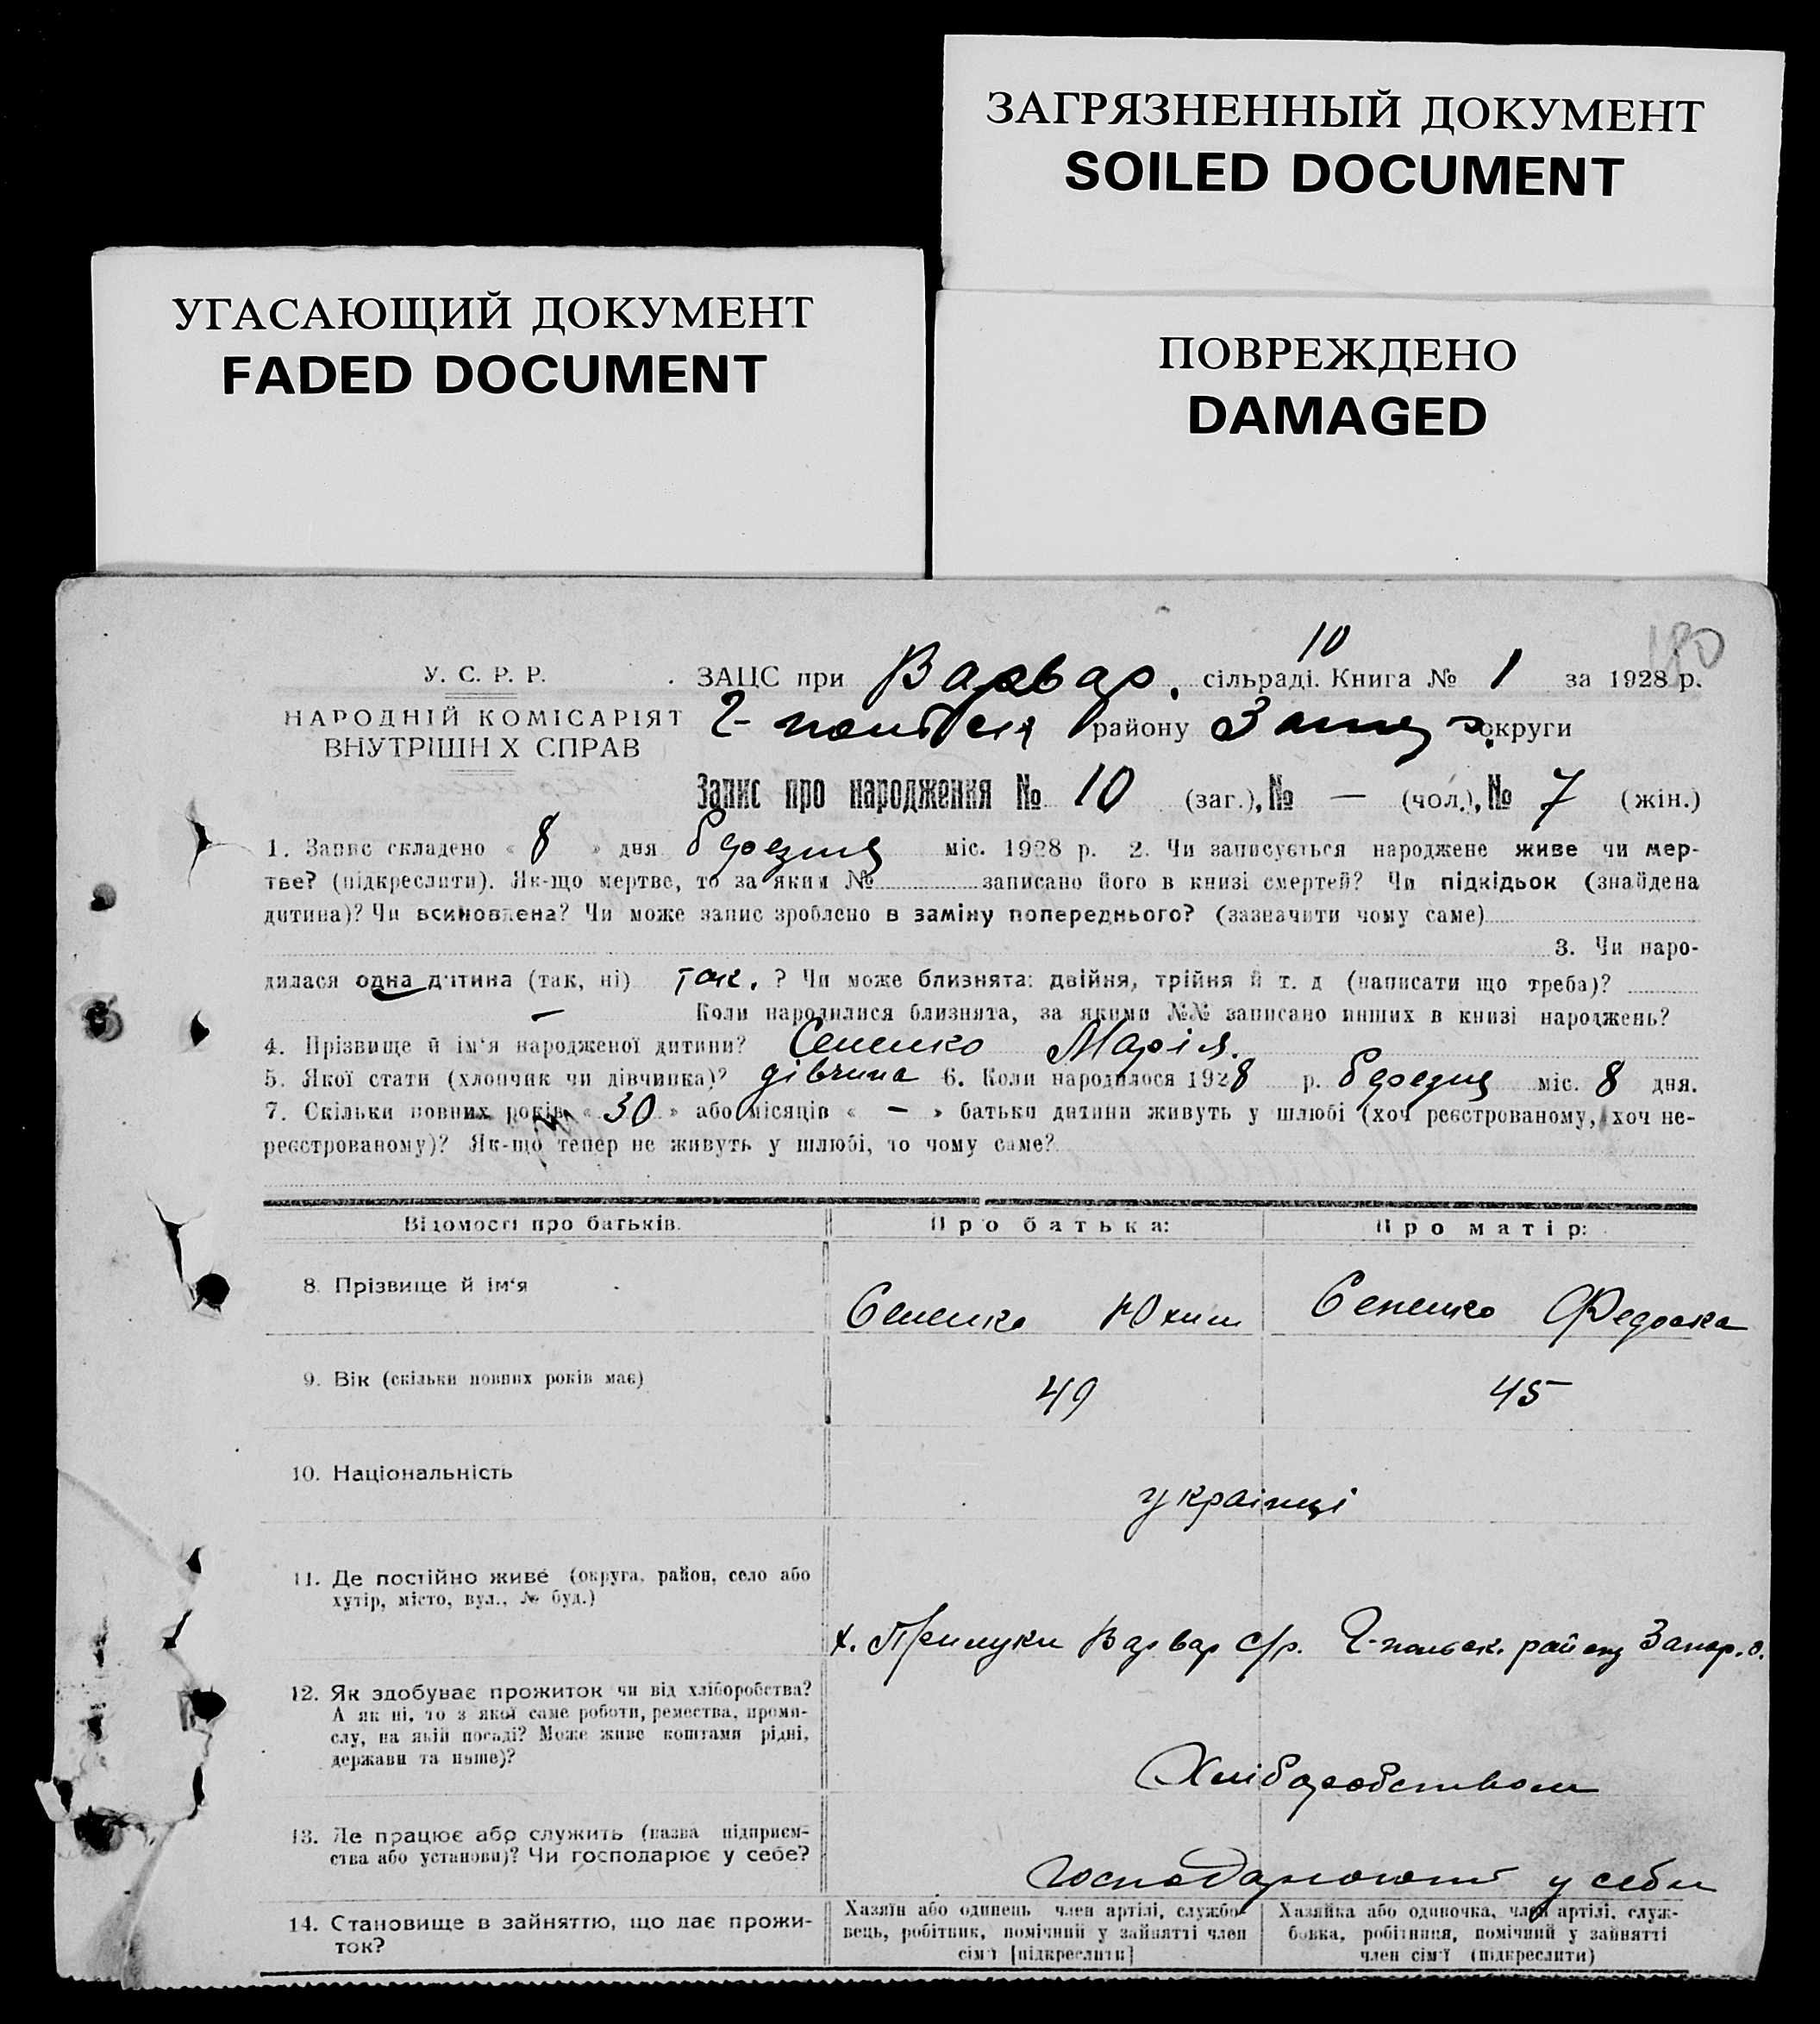 ЗАГРЯЗНЕННЫЙ ДОКУМЕНТ
SOILED DOCUMENT
УГАСАЮЩИЙ ДОКУМЕНТ
FADED DOCUMENT
ПОВРЕЖДЕНО
DAMAGED
180
10
У. С. Р. Р.
НАРОДНІЙ КОМІСАРІЯТ
ВНУТРІШН Х СПРАВ
ЗАЦС при Варвар. сільраді. Книга № 1 за 1928 р.
району округи
Запис про народження № 10 (заг.), № — (чол.), № 7 (жін.)
1. Запис складено « 8 » дня березня міс. 1928 р. 2. Чи записується народжене живе чи мер-
тве? (підкреслити). Як-що мертве, то за яким № записано його в книзі смертей? Чи підкідьок (знайдена
дитина)? Чи всиновлена? Чи може запис зроблено в заміну попереднього? (зазначити чому саме)
3. Чи наро-
дилася одна дитина (так, ні) так. ? Чи може близнята: двійня, трійня й т. д (написати що треба)?
— Коли народилися близнята, за якими №№ записано инших в книзі народжень?
4. Прізвище й ім‘я народженої дитини? Сененко Марія.
5. Якої стати (хлопчик чи дівчинка)? дівчина 6. Коли народилося 1928 р. березня міс. 8 дня.
7. Скільки повних років « 30 » або місяців « — » батьки дитини живуть у шлюбі (хоч реєстрованому, хоч не-
реєстрованому)? Як-що тепер не живуть у шлюбі, то чому саме?
Відомості про батьків. Про батька: Про матір:
8. Прізвище й ім‘я
Сененко Юхим Сененко Федоска
9. Вік (скільки повних років має)
49 45
10. Національність
українці
11. Де постійно живе (округа, район, село або
хутір, місто, вул., № буд.)
х. Прилуки Варвар с/р. Г-польск. району Запор. о.
12. Як здобуває прожиток чи від хліборобства?
А як ні, то з якої саме роботи, ремества, проми-
слу, на якій посаді? Може живе коштами рідні,
держави та инше)?
Хліборобством
13. Де працює або служить (назва підприєм-
ства або установи)? Чи господарює у себе?
господарюють у себи
14. Становище в зайняттю, що дає прожи-
ток?
Хазяїн або одинець член артілі, службо-
вець, робітник, помічний у зайнятті член
сім‘ї [підкреслити]
Хазяйка або одиночка, член артілі, служ-
бовка, робітниця, помічний у зайнятті
член сім‘ї (підкреслити)